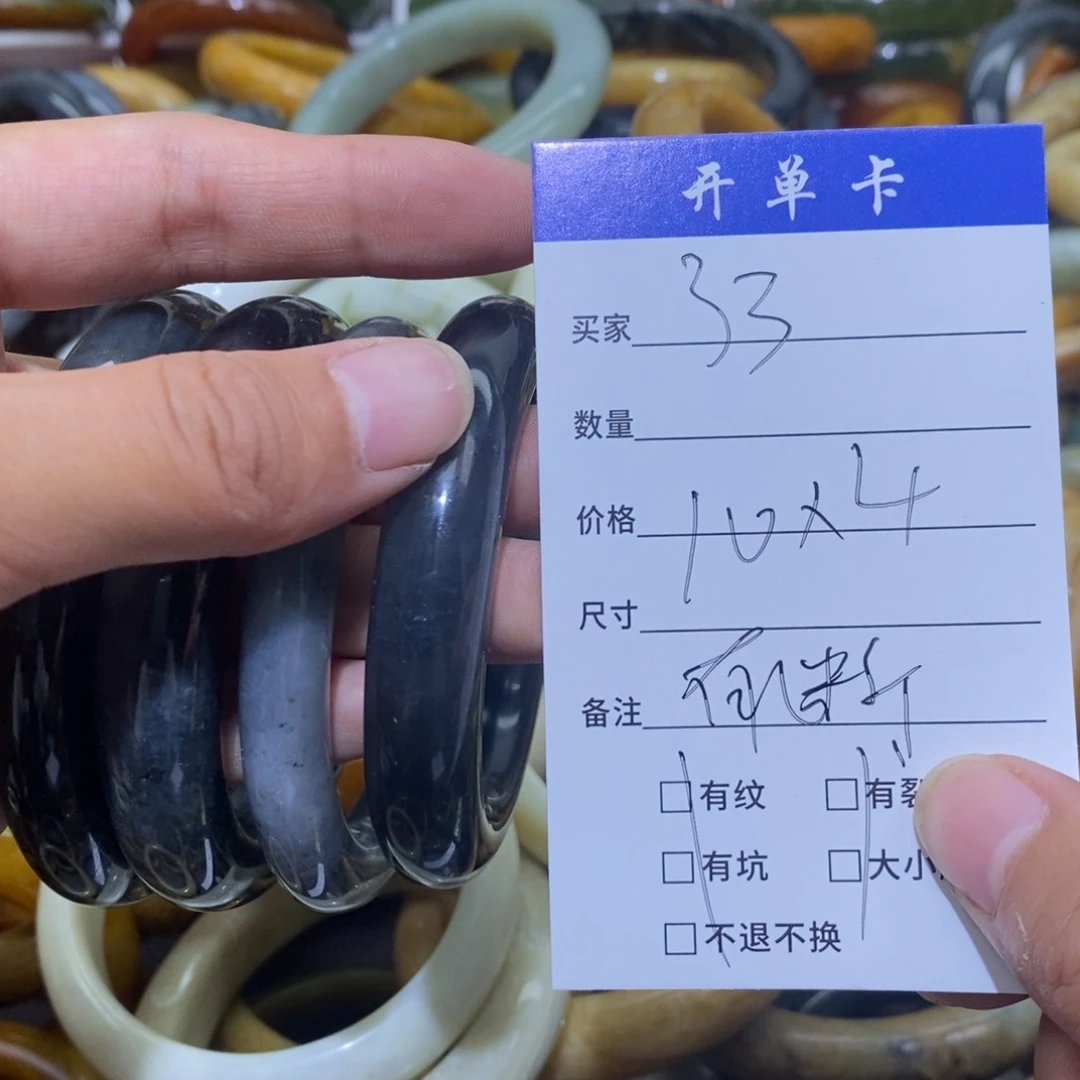 开单卡
买家 33
数量
价格 10x4
尺寸
备注 有 断
□有纹 □有裂
□有坑 □大小
□不退不换